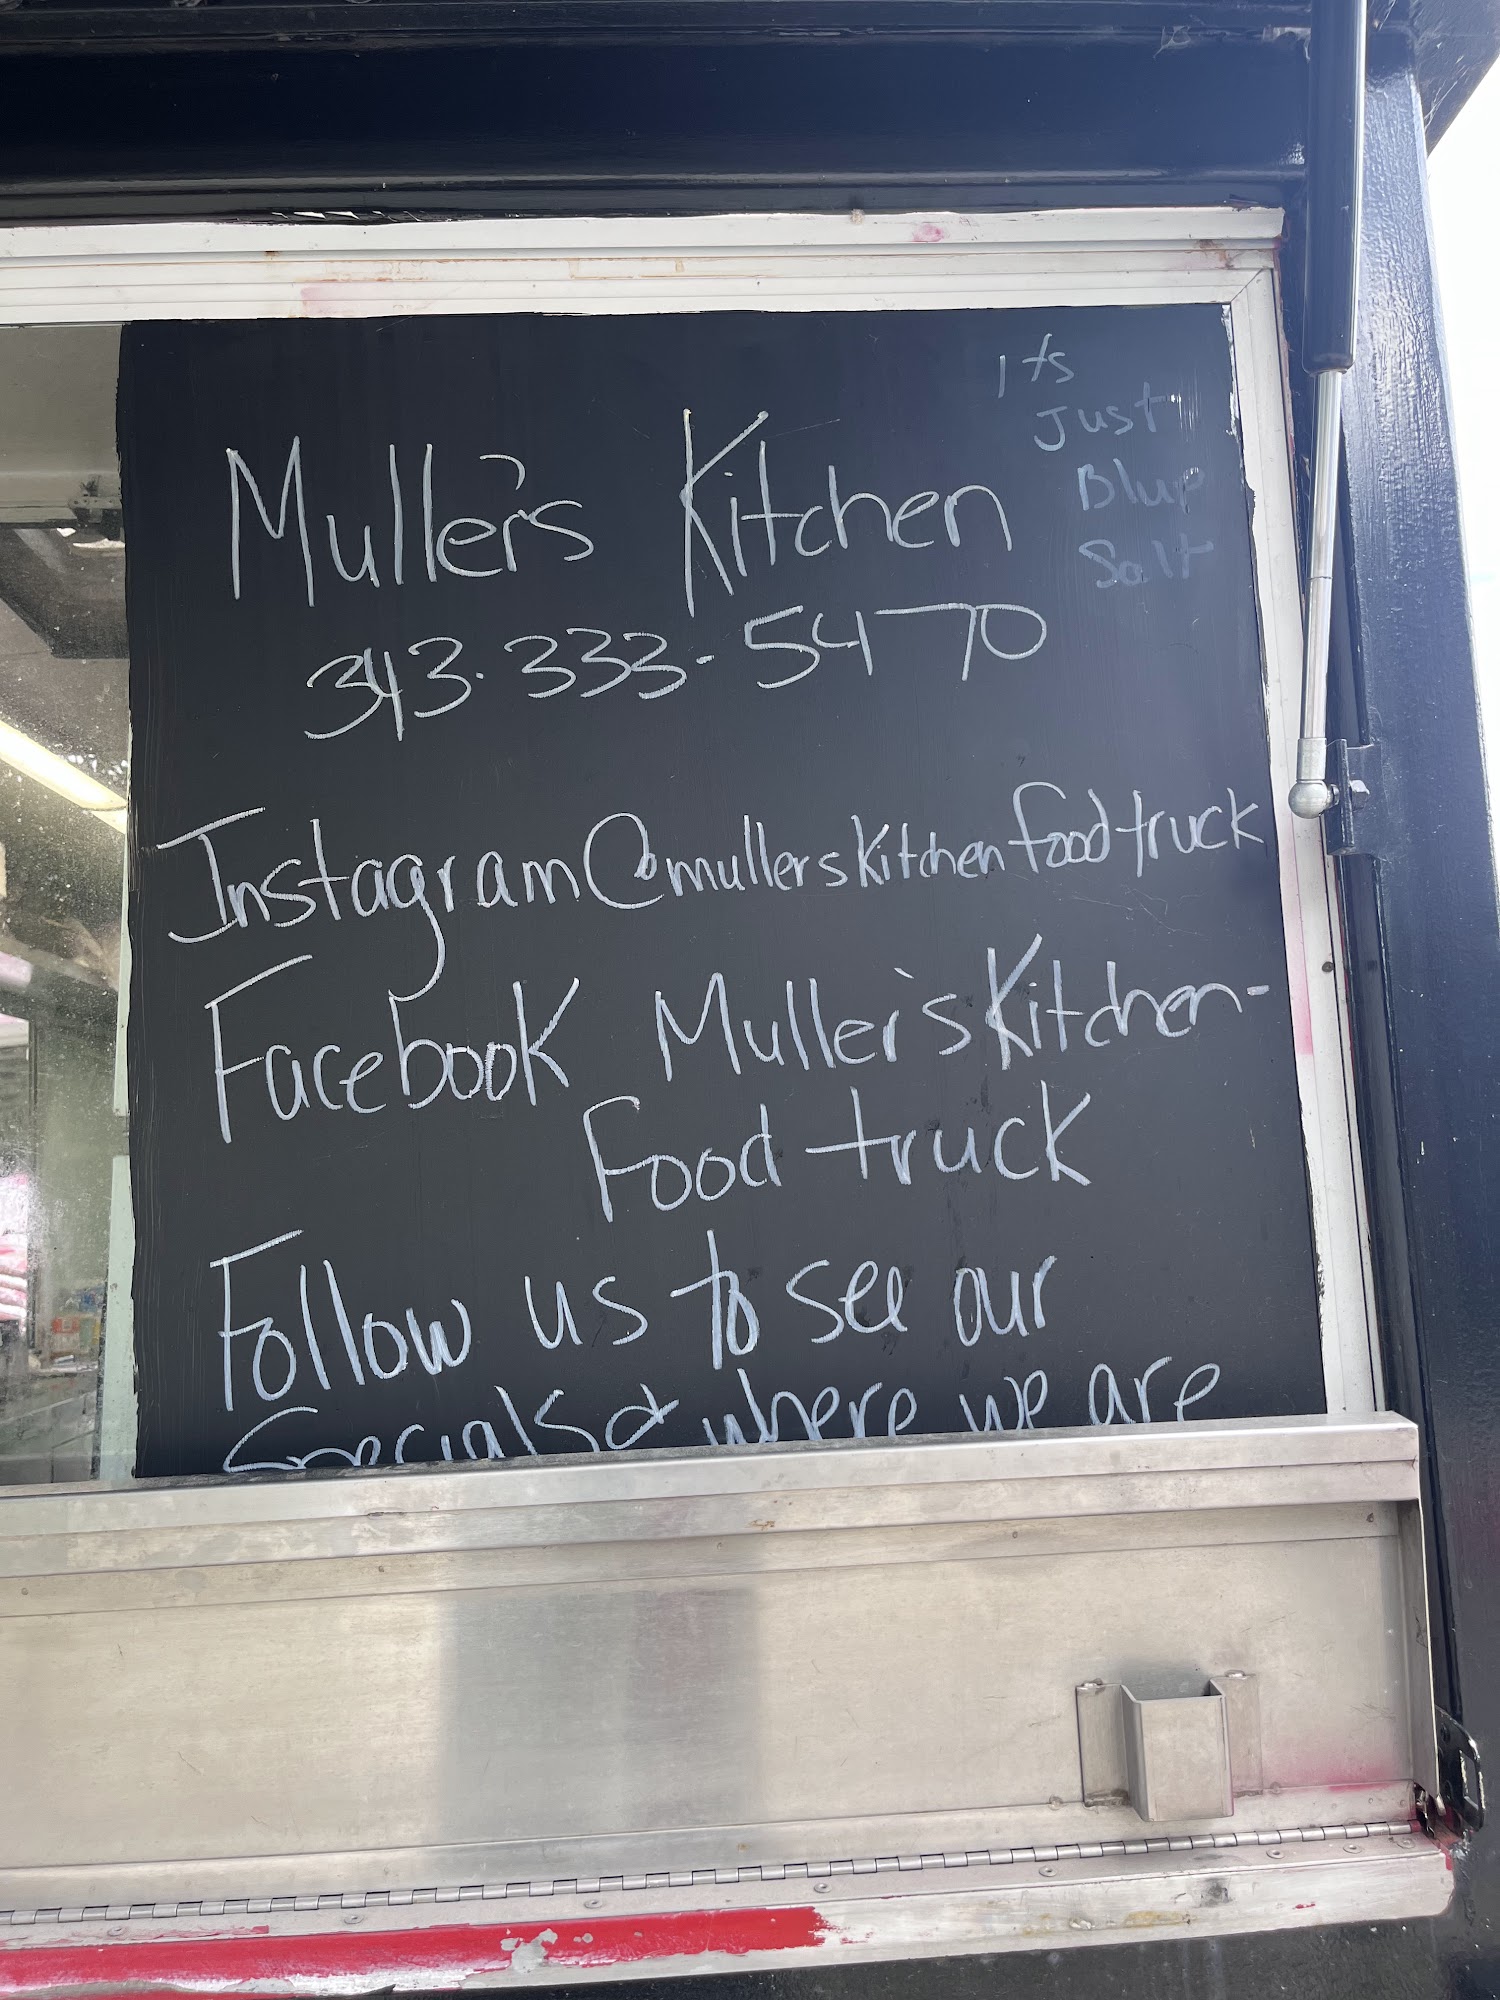 Its
Just
Blue
Salt
Muller's Kitchen
343-333-5470
Instagram@mullerskitchenfoodtruck
Facebook Muller's Kitchen-
Food truck
Follow us to see our
Specials & where we are